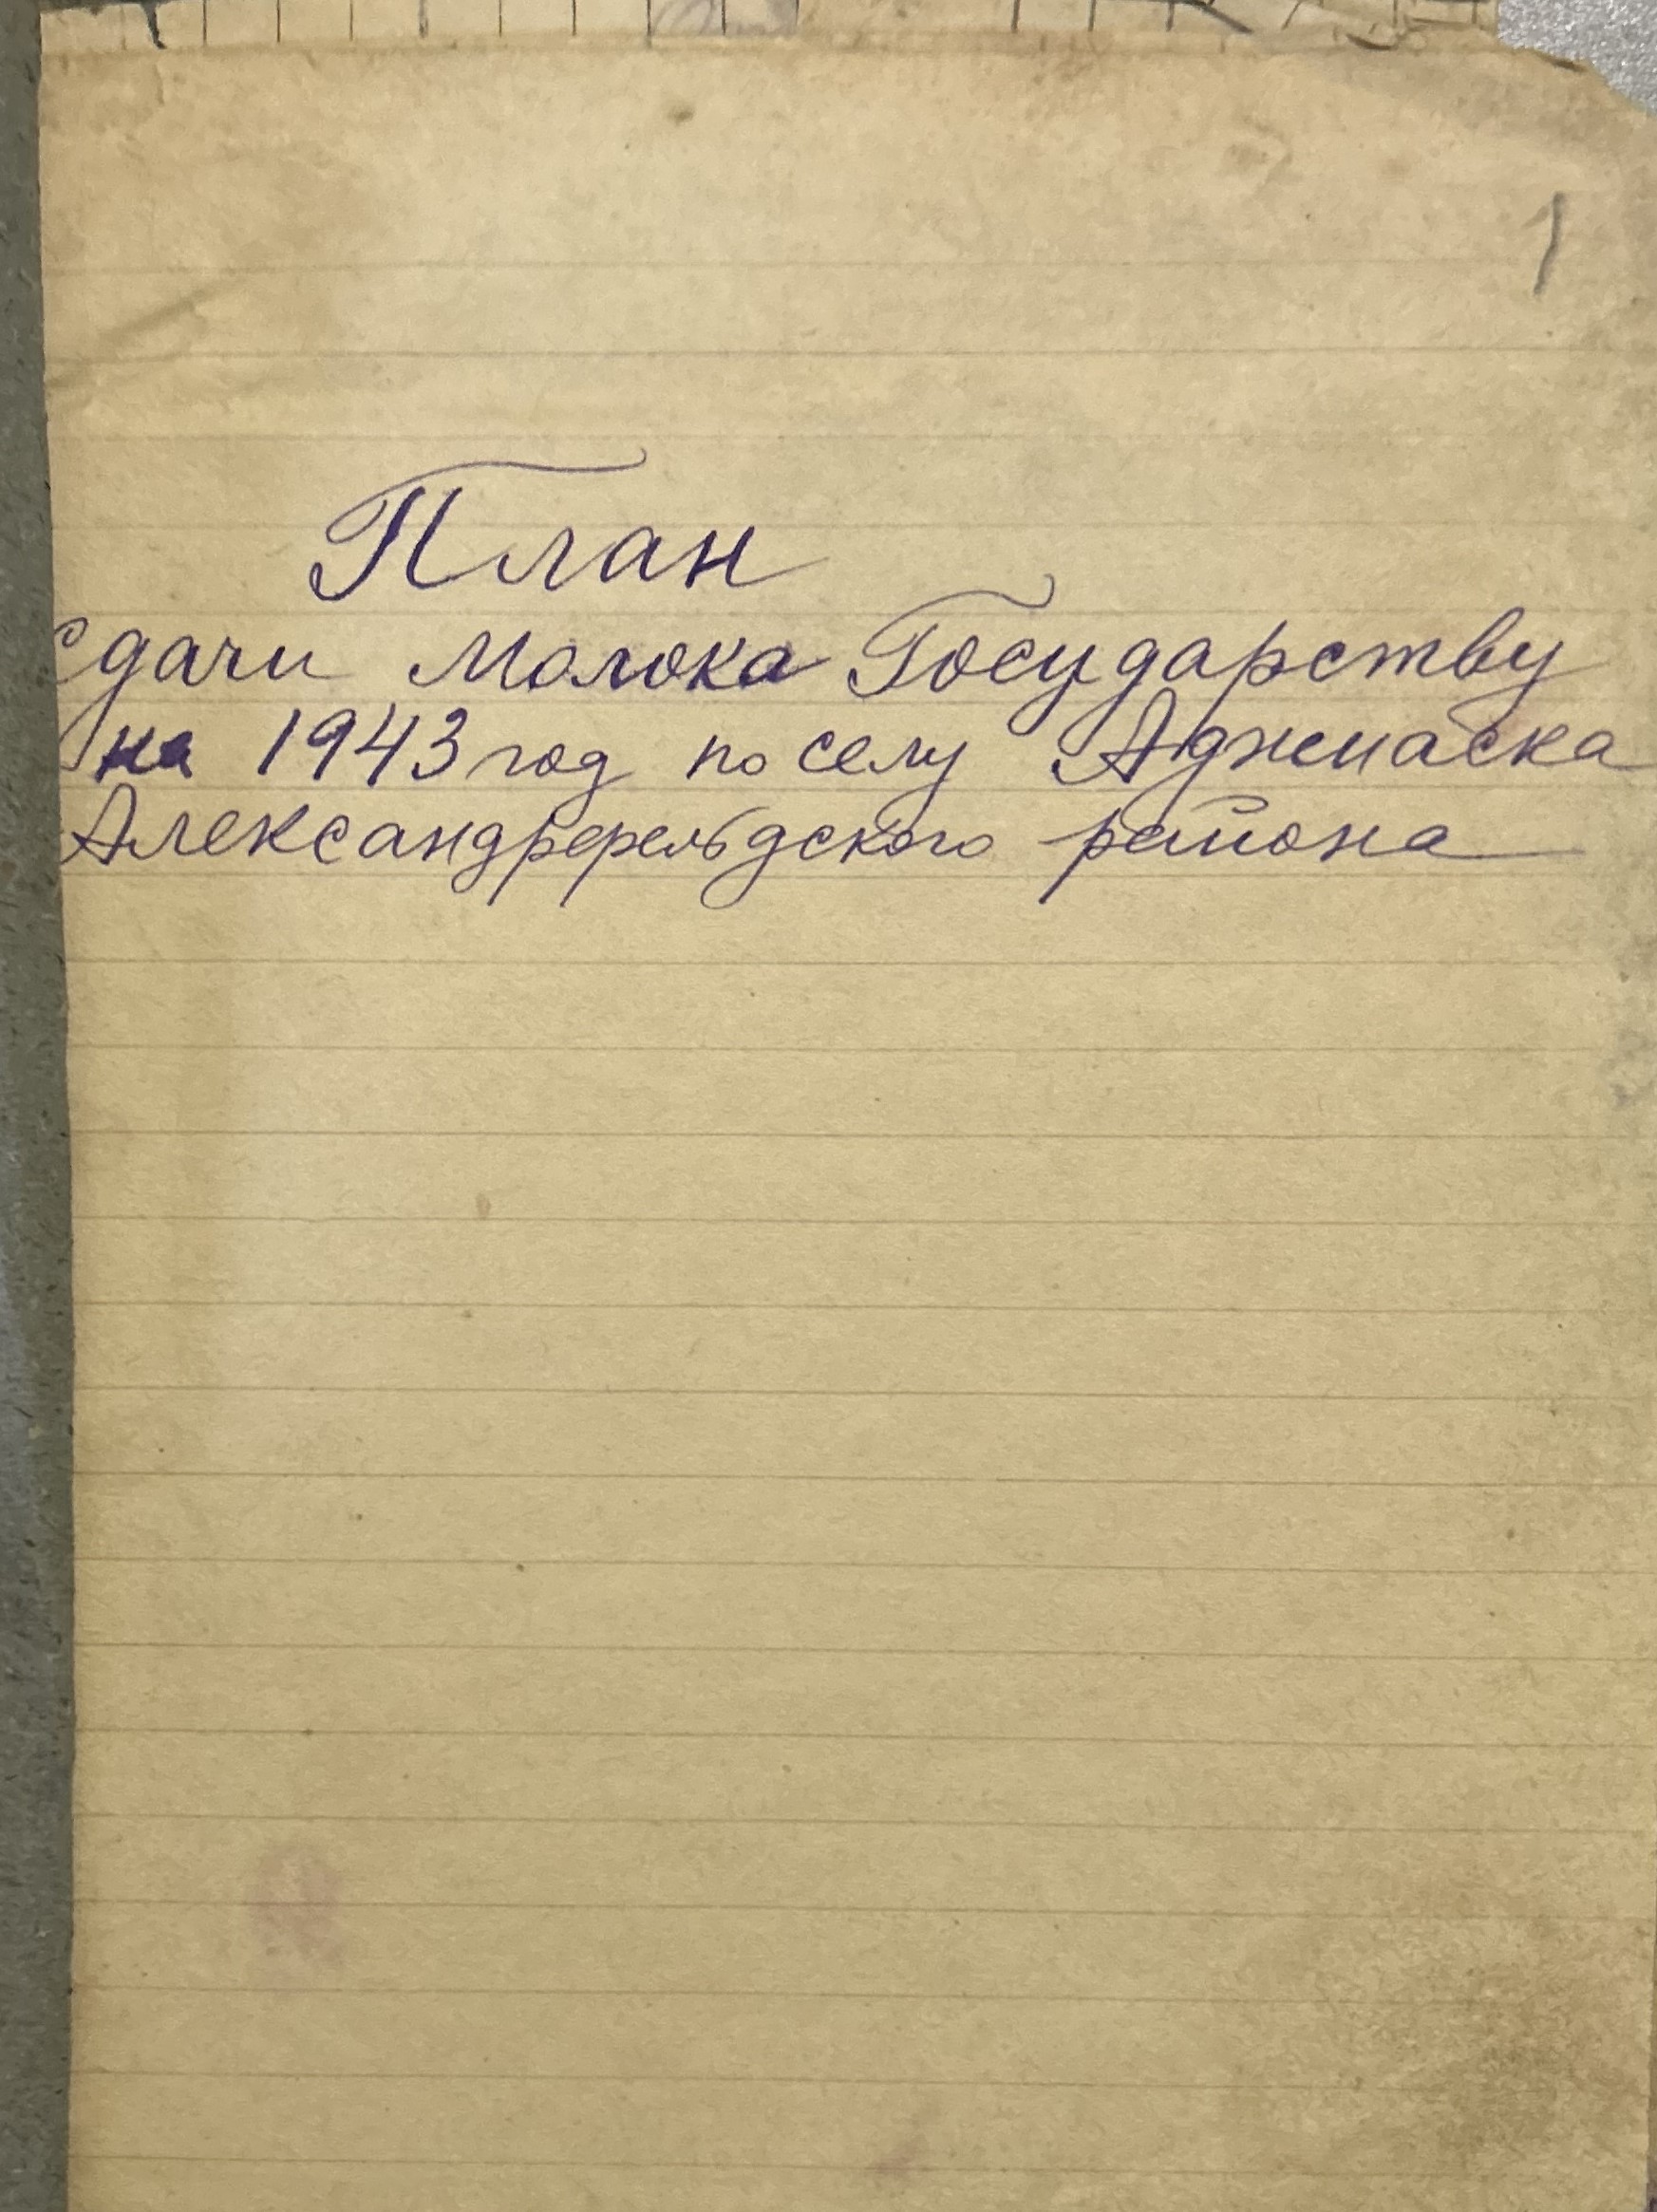 1
План
сдачи Молока Государству
на 1943 год по селу Аджиаска
Александрфельдского района